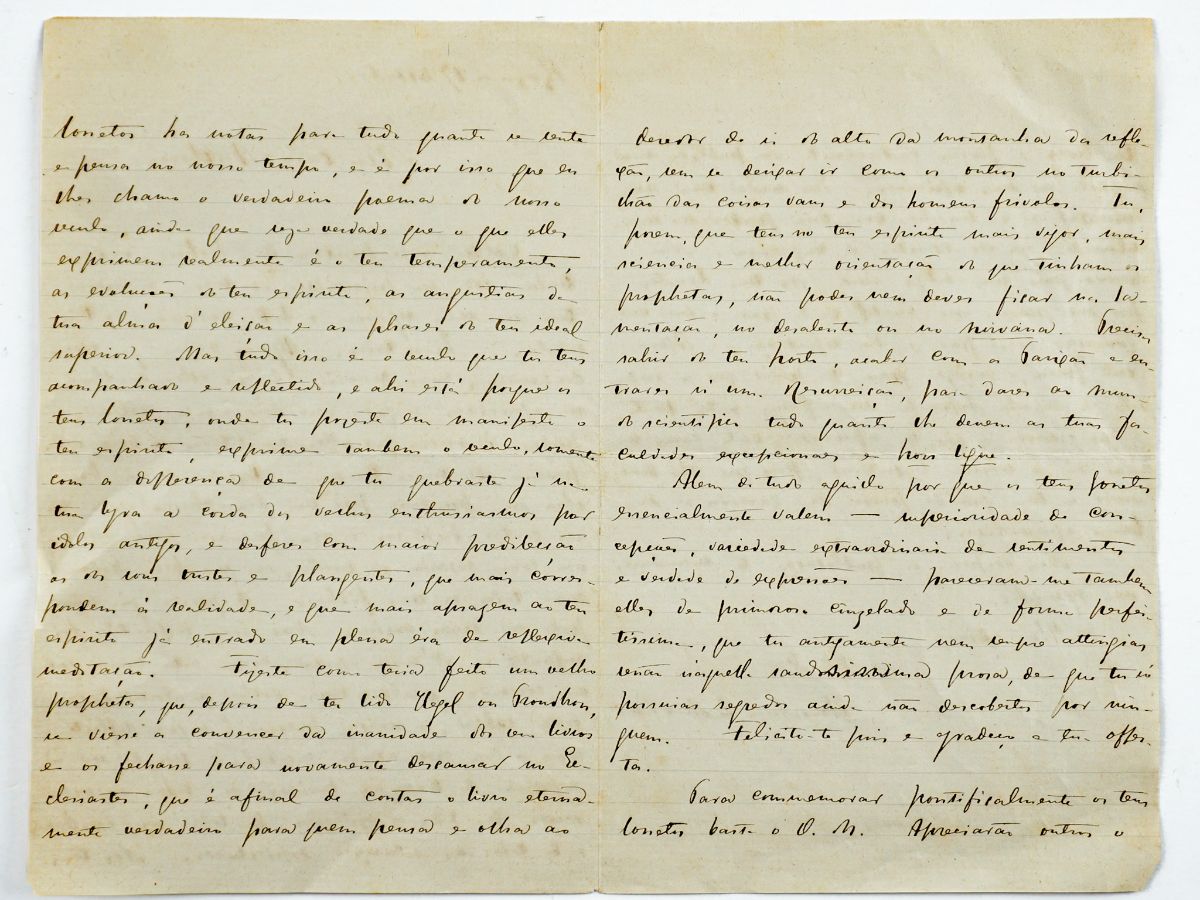 Sonetos ha notas para tudo quanto se sente
e pensa no nosso tempo, e é por isso que eu
lhes chamo o verdadeiro poema do nosso
seculo, ainda que seja verdade que o que elles
exprimem realmente é o teu temperamento,
as evoluções do teu espirito, as angustias da
tua alma d'eleição e as phases do teu ideal
superior. Mas tudo isso é o seculo que tu tens
acompanhado e reflectido, e ahi está porque os
teus Sonetos, onde tu poseste em manifesto o
teu espirito, exprime tambem o seculo, somente
com a differença de que tu quebraste já na
tua lyra a córda dos velhos enthusiasmos por
idolos antigos, e desferes com maior predilecção
as dos sons tristes e plangentes, que mais corres-
pondem á realidade, e que mais aprazem ao teu
espirito já entrado em plena éra de reflexiva
meditação. Fizeste como teria feito um velho
propheta, que, depois de ter lido Hegel ou Proudhon,
se viesse a convencer da inanidade dos seus livros
e os fechasse para novamente descansar no Ec-
clesiastes, que é afinal de contas o livro eterna-
mente verdadeiro para quem pensa e olha ao
derredor de si do alto da montanha da refle-
xão, sem se deixar ir como os outros no turbi-
lhão das coisas vans e dos homens frivolos. Tu,
porem, que tens no teu espirito mais vigor, mais
sciencia e melhor orientação do que tinham os
prophetas, não podes nem deves ficar na la-
mentação, no desalento ou no nirvâna. Precisas
sahir do teu horto, acabar com a Paixão e en-
trares n'uma Resurreição, para dares ao mun-
do scientifico tudo quanto lhe devem as tuas fa-
culdades excepcionaes e hors ligne.
Alem de tudo aquillo por que os teus Sonetos
essencialmente valem — superioridade de con-
cepção, variedade extraordinaria de sentimentos
e verdade de expressão — pareceram-me tambem
elles de primoroso cinzelado e de forma perfei-
tissima, que tu antigamente nem sempre attingias
senão n'aquella prosa, de que tu só
possuias segredos ainda não descobertos por nin-
guem. Felicito-te pois e agradeço a tua offer-
ta.
Para commemorar pontifiçalmente os teus
Sonetos basta o O. M. Apreciarão outros o